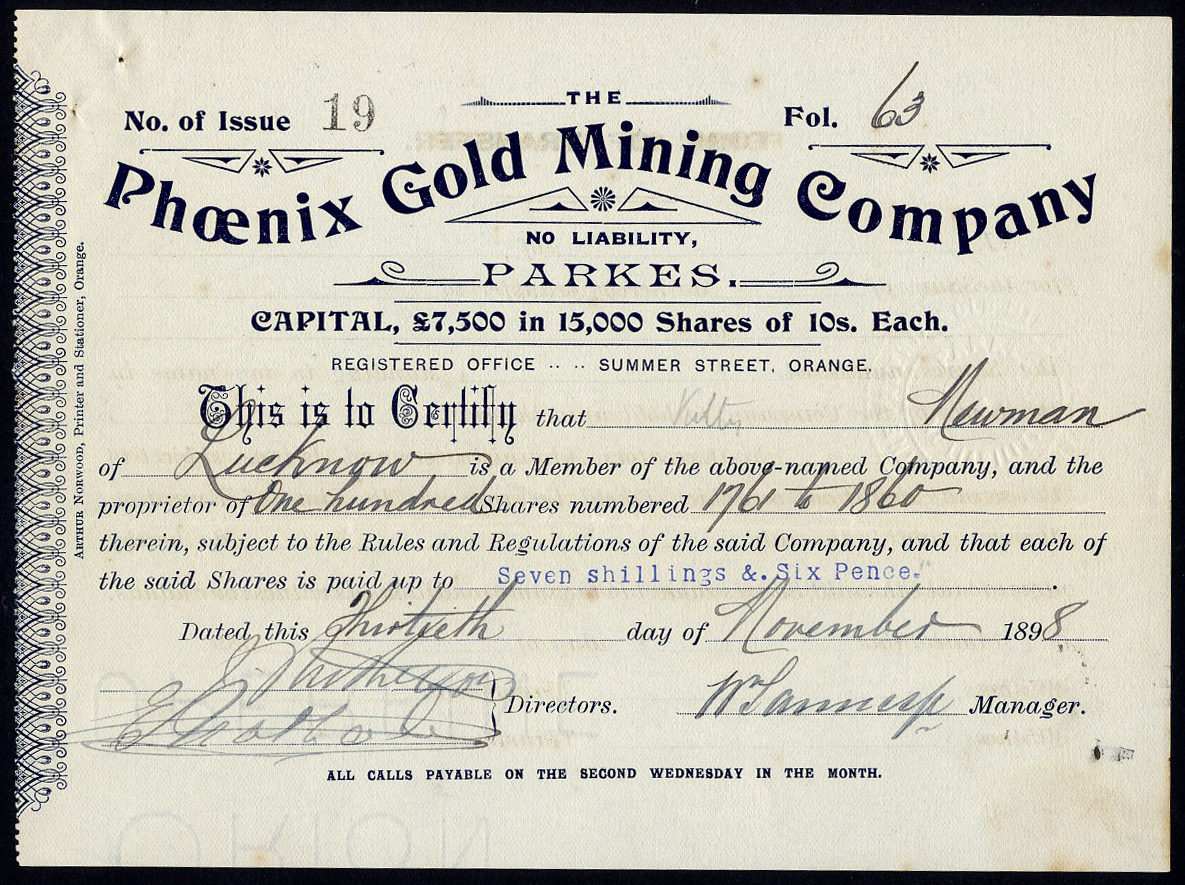 No. of Issue 19
THE
Fol. 63
Phœnix Gold Mining Company
NO LIABILITY,
PARKES.
CAPITAL, £7,500 in 15,000 Shares of 10s. Each.
REGISTERED OFFICE .. .. SUMMER STREET, ORANGE.
This is to Certify that Newman
of Lucknow is a Member of the above-named Company, and the
proprietor of One hundred Shares numbered 1761 to 1860
therein, subject to the Rules and Regulations of the said Company, and that each of
the said Shares is paid up to Seven shillings &. Six Pence."
Dated this Thirtieth day of November 1898
Directors. Manager.
ALL CALLS PAYABLE ON THE SECOND WEDNESDAY IN THE MONTH.
ARTHUR NORWOOD, Printer and Stationer, Orange.